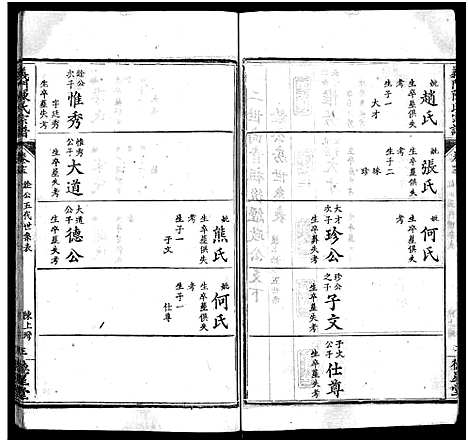 義門陳氏宗譜
妣趙氏
生卒墓俱失
考
生子一
大才
妣張氏
生卒墓俱失
考
生子二
珠
珍
妣何氏
生卒墓俱失
考
生子一
大才次子
珍公
生卒墓失考
珍公之子
子文
生卒墓失考
子文公子
仕尊
生卒墓失考
餘公次子
惟秀
字廷秀
生卒墓失考
惟秀公子
大道
生卒墓失考
大道公子
德公
生卒墓失考
妣熊氏
生卒墓俱失
考
生子一
子文
妣何氏
生卒墓俱失
考
生子一
仕尊
義門陳氏宗譜
公五代世系表